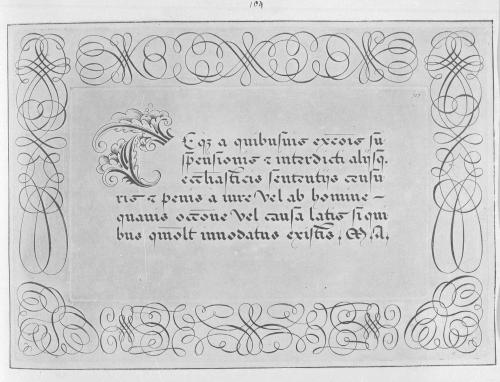 Teqz a quibusuis excōis sū
spensionis ⁊ interdicti alijsq.
ecc̄liasticis sententijs censu
ris ⁊ penis a iure vel ab homine –
quauis occōne vel causā latis si qui
bus qmōlt innodatus existis. M. A.